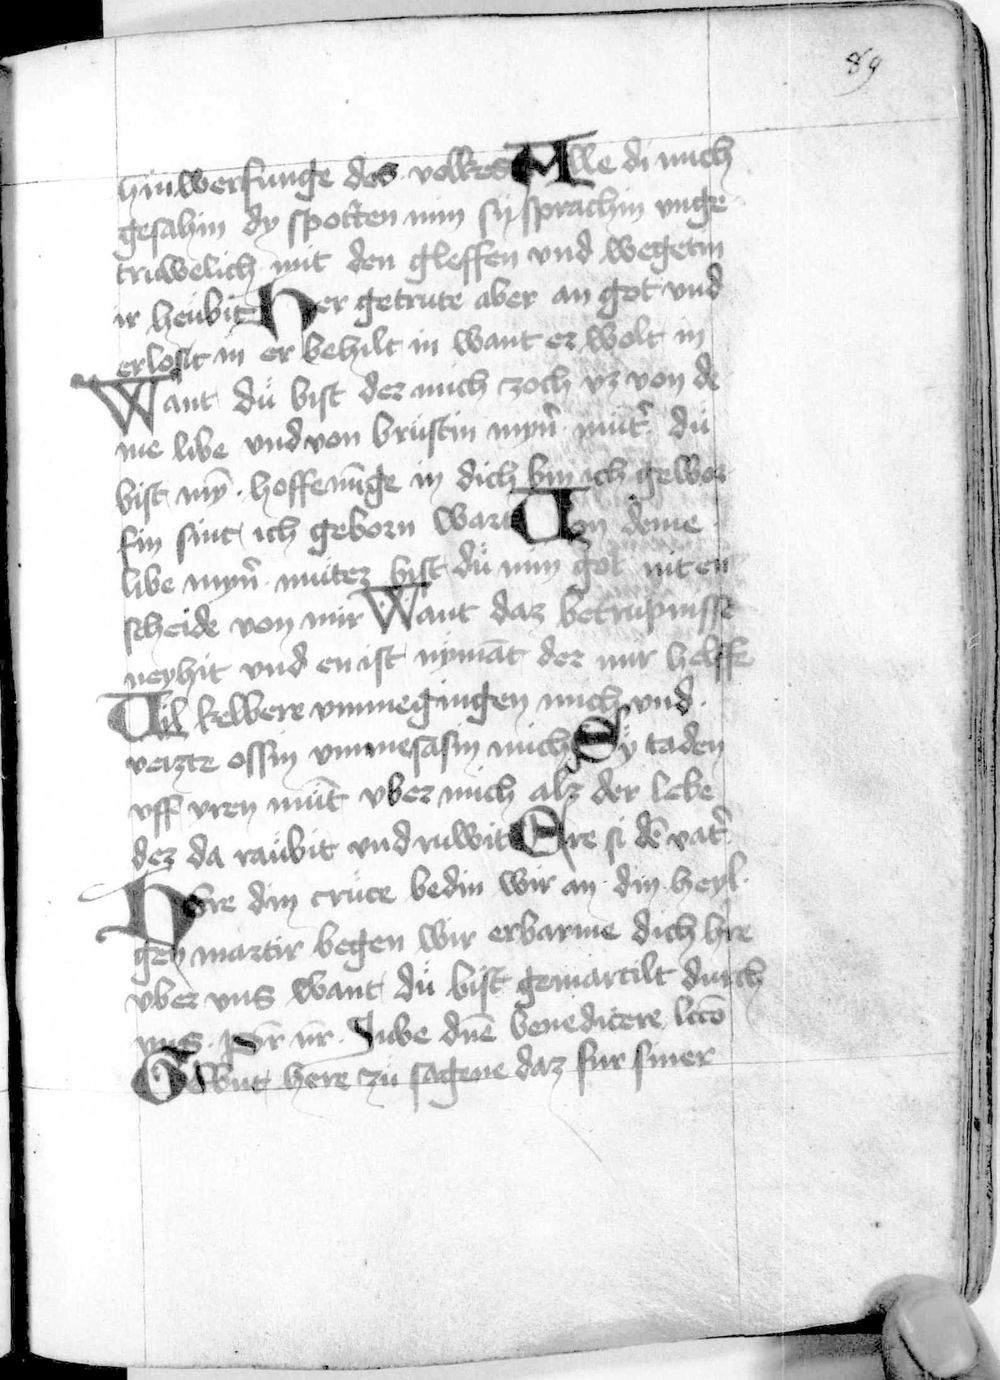 89
hinwerfunge des volkes Alle di mich
gesahin dy spotten min sy sprachin unge
truwelich mit den gleffen und wegetin
ir heubit Her getrute aber an got und
erlosit in er behilt in want er wolt in
Want du bist der mich zoch uz von de
me libe und von brustin myn̄ mut̄ du
bist my̅ hoffenu̅ge in dich bin ich gewor
fin sint ich geborn wart Von deme
libe myn̄ muter bist du min got nit en
scheide von mir Want daz betrupnisse
neyhit und en ist nyma̅t der mir helffe
Vil kelbere ummegingen mich und
veizte ossin ummesasin mich Sy taden
uff yren mu̅t uber mich alz der lebe
der da raubit und ruwit Ere si de̅ vat̄
Here din cruce bedin wir an din heyl
gen martir begen wir erbarme dich h̅re
uber uns want du bist gemartilt durch
uns p̄r n̄r Jube dn̄e benedicere lcc̄o
Gebut here zu sagene daz fur siner